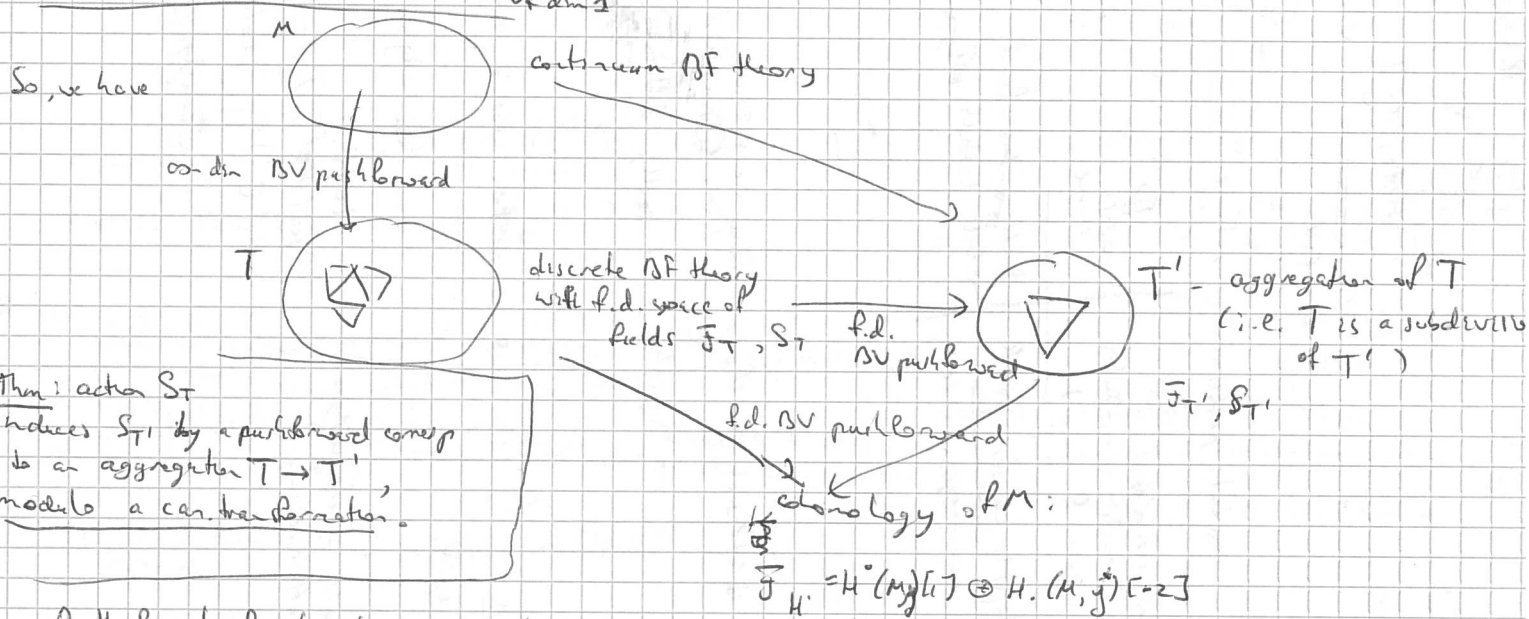 of dim 1
M
continuum BF theory
So, we have
∞-dim BV pushforward
T
discrete BF theory
with f.d. space of
fields F_T, S_T
f.d.
BV pushforward
T' - aggregation of T
(i.e. T is a subdivision
of T')
F_T', S_T'
Thm: action S_T
induces S_T' by a pushforward corresp
to an aggregation T → T',
modulo a can. transformation.
f.d. BV pushforward
cohomology of M:
F_H• = H•(M,g)[1] ⊕ H.(M, g*)[-2]